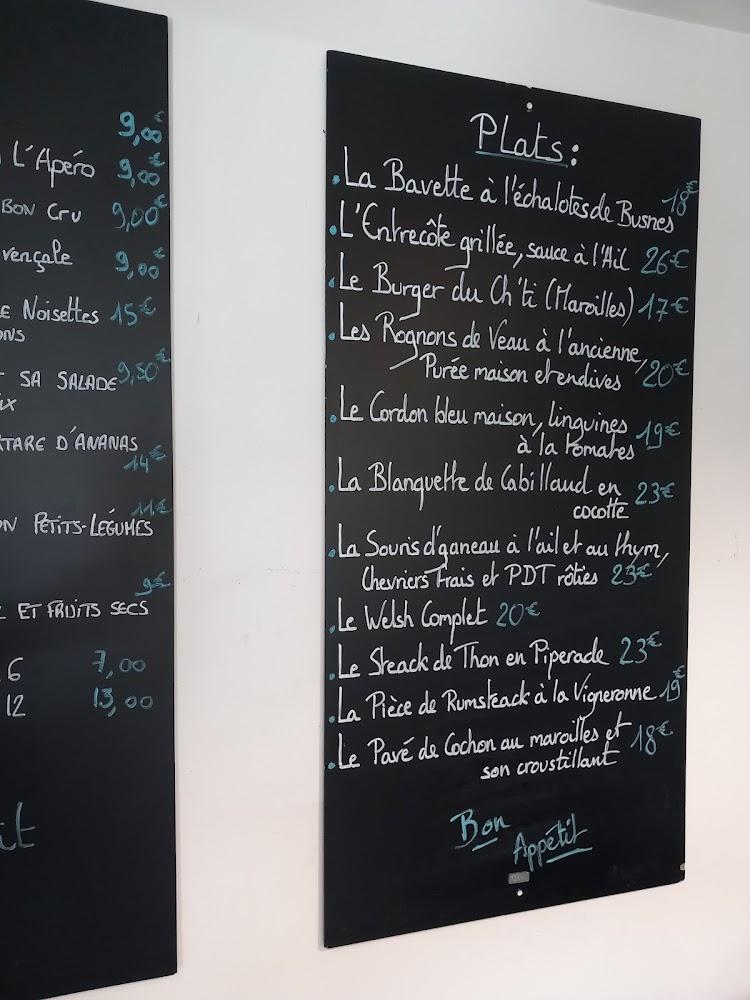 9,00€
L'Apéro 9,00€
BON CRU 9,00€
9,00€
NOISETTES 15€
SA SALADE 9,50€
D'ANANAS
14€
11€
PETITS-LÉGUMES
9€
ET FRUITS SECS
6 7,00
12 13,00
Plats:
La Bavette à l'échalotes de Busnes 18€
L'Entrecôte grillée, sauce à l'Ail 26€
Le Burger du Ch'ti (Maroilles) 17€
Les Rognons de Veau à l'ancienne,
Purée maison et endives 20€
Le Cordon bleu maison, linguines
à la tomates 19€
La Blanquette de Cabillaud en
cocotte 23€
La Souris d'aganeau à l'ail et au thym,
Chevriers frais et PDT rôties 23€
Le Welsh Complet 20€
Le Steack de Thon en Piperade 23€
La Pièce de Rumsteack à la Vigneronne 19€
Le Pavé de Cochon au maroilles et
son croustillant 18€
Bon
Appétit